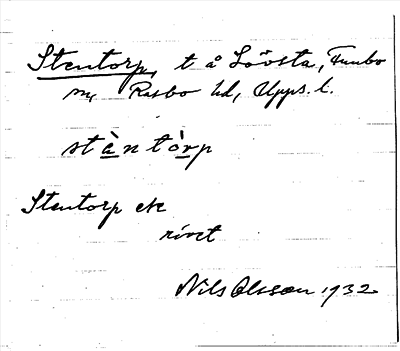 Stentorp, t å Lövsta, Funbo
sn, Rasbo hd, Upps. l.
stàntòrp
Stentorp ek
rivet
Nils Olsson 1932